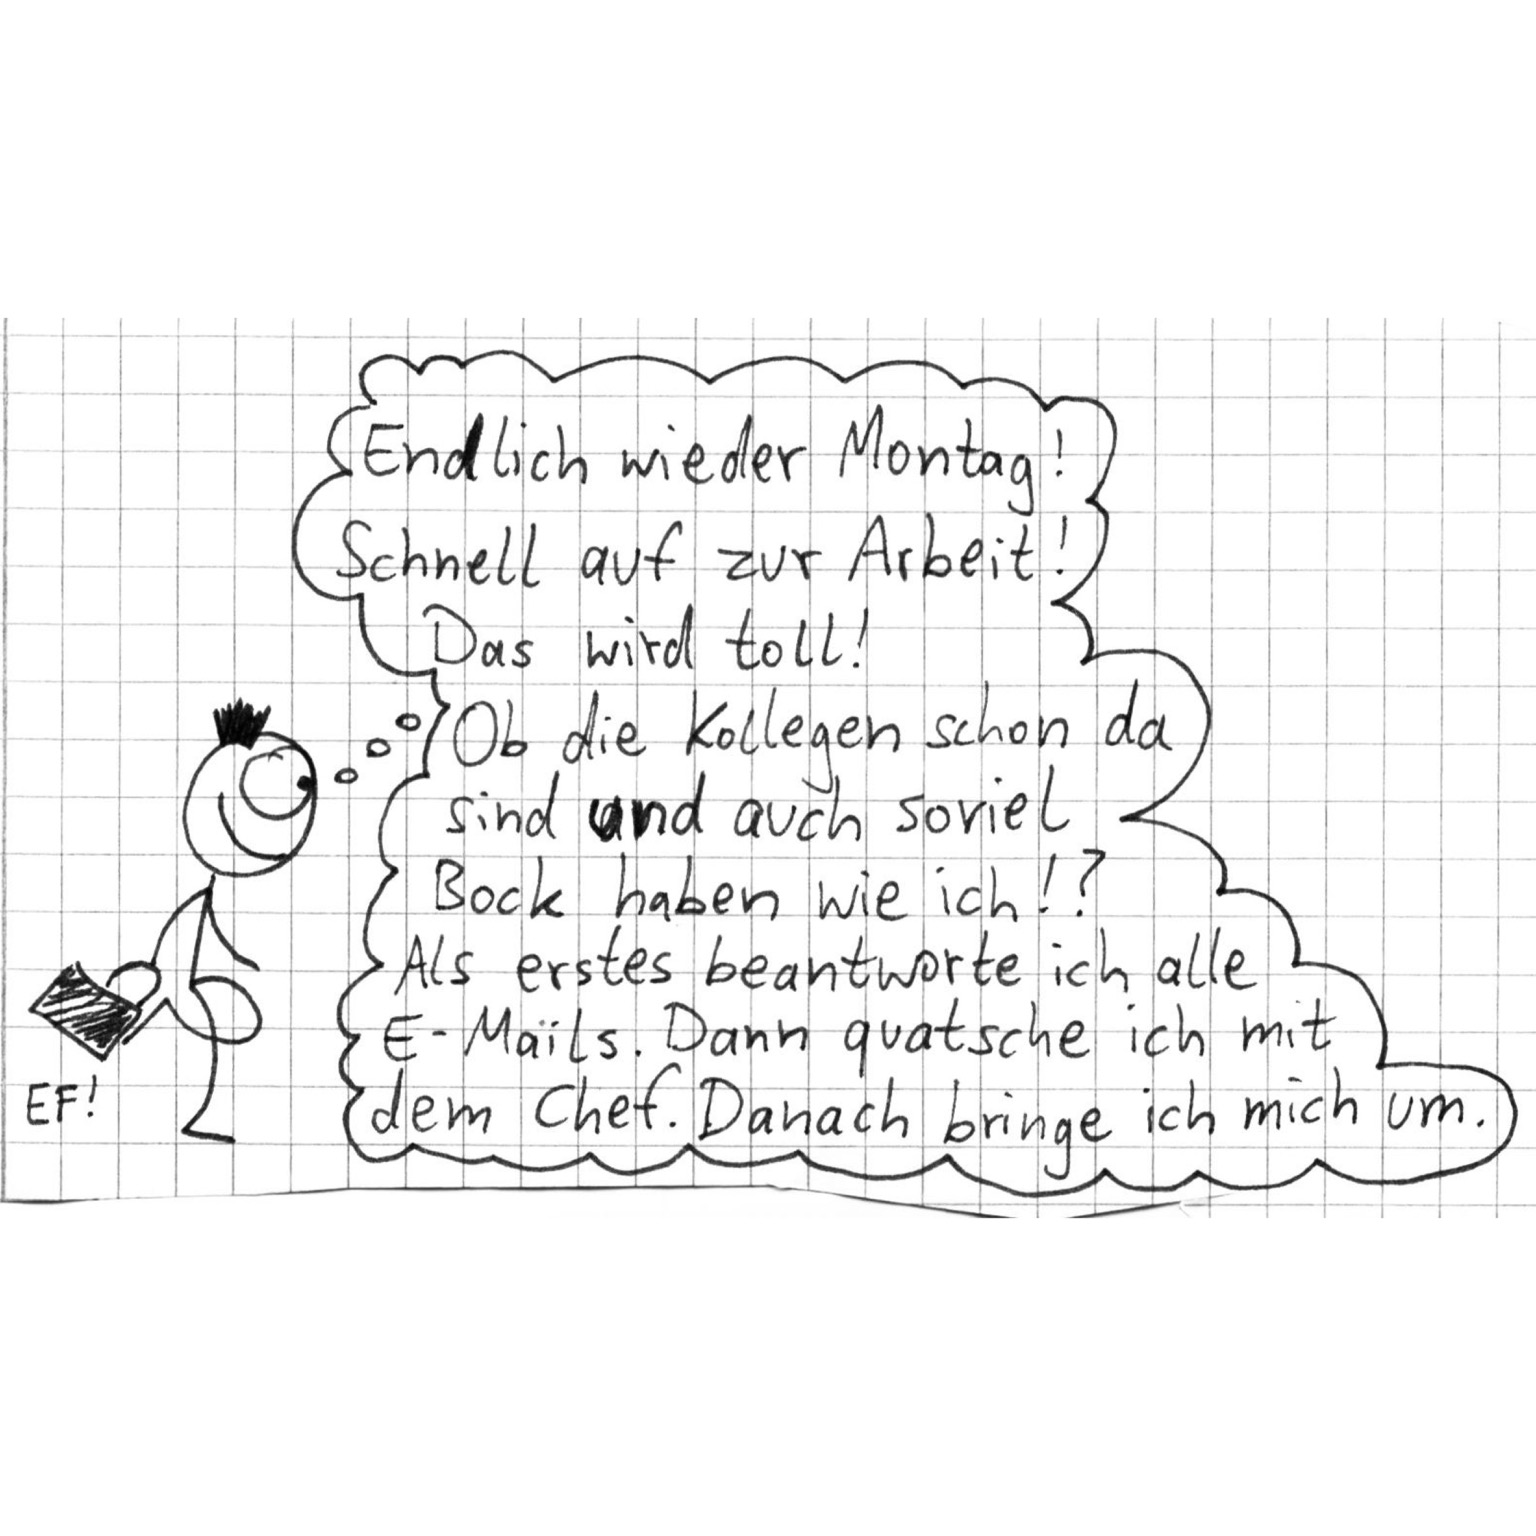 Endlich wieder Montag!
Schnell auf zur Arbeit!
Das wird toll!
Ob die Kollegen schon da
sind und auch soviel
Bock haben wie ich!?
Als erstes beantworte ich alle
E-Mails. Dann quatsche ich mit
dem Chef. Danach bringe ich mich um.
EF!